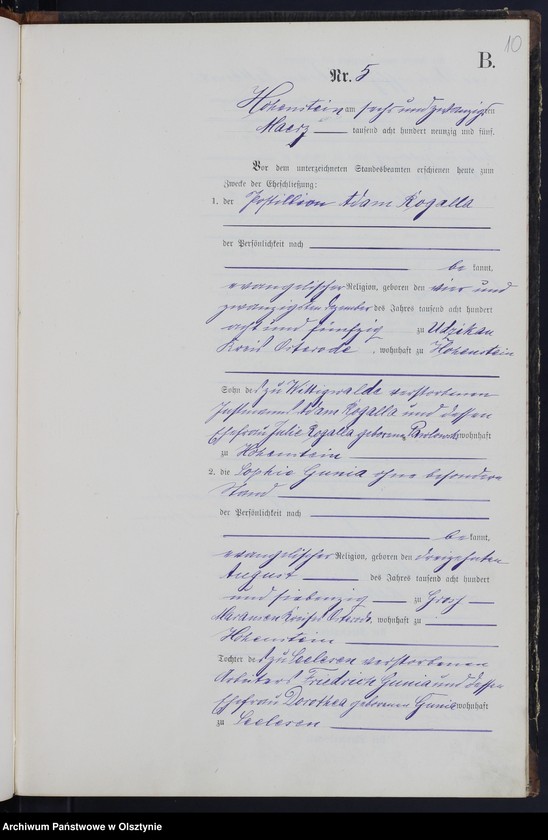 10
B.
Nr. 5
Hohenstein am sechs und zwanzigsten
Maerz tausend acht hundert neunzig und fünf.
Vor dem unterzeichneten Standesbeamten erschienen heute zum
Zwecke der Eheschließung:
1. der Postillion Adam Rogalla
der Persönlichkeit nach
be kannt,
evangelischer Religion, geboren den vier und
zwanzigsten Dezember des Jahres tausend acht hundert
acht und fünfzig zu Udzikau
Kreis Osterode, wohnhaft zu Hohenstein
Sohn des zu Wittigwalde verstorbenen
Instmanns Adam Rogalla und dessen
Ehefrau Julie Rogalla geborene wohnhaft
zu Hohenstein
2. die Sophie Gunia ohne besonderen
Stand
der Persönlichkeit nach
be kannt,
evangelischer Religion, geboren den dreizehnten
August des Jahres tausend acht hundert
und siebenzig zu Gross
Maransen Kreises Osterode, wohnhaft zu
Hohenstein
Tochter des zu Seelesen verstorbenen
Arbeiters Friedrich Gunia und dessen
Ehefrau Dorothea geborenen Gunia wohnhaft
zu Seelesen
Archiwum Państwowe w Olsztynie